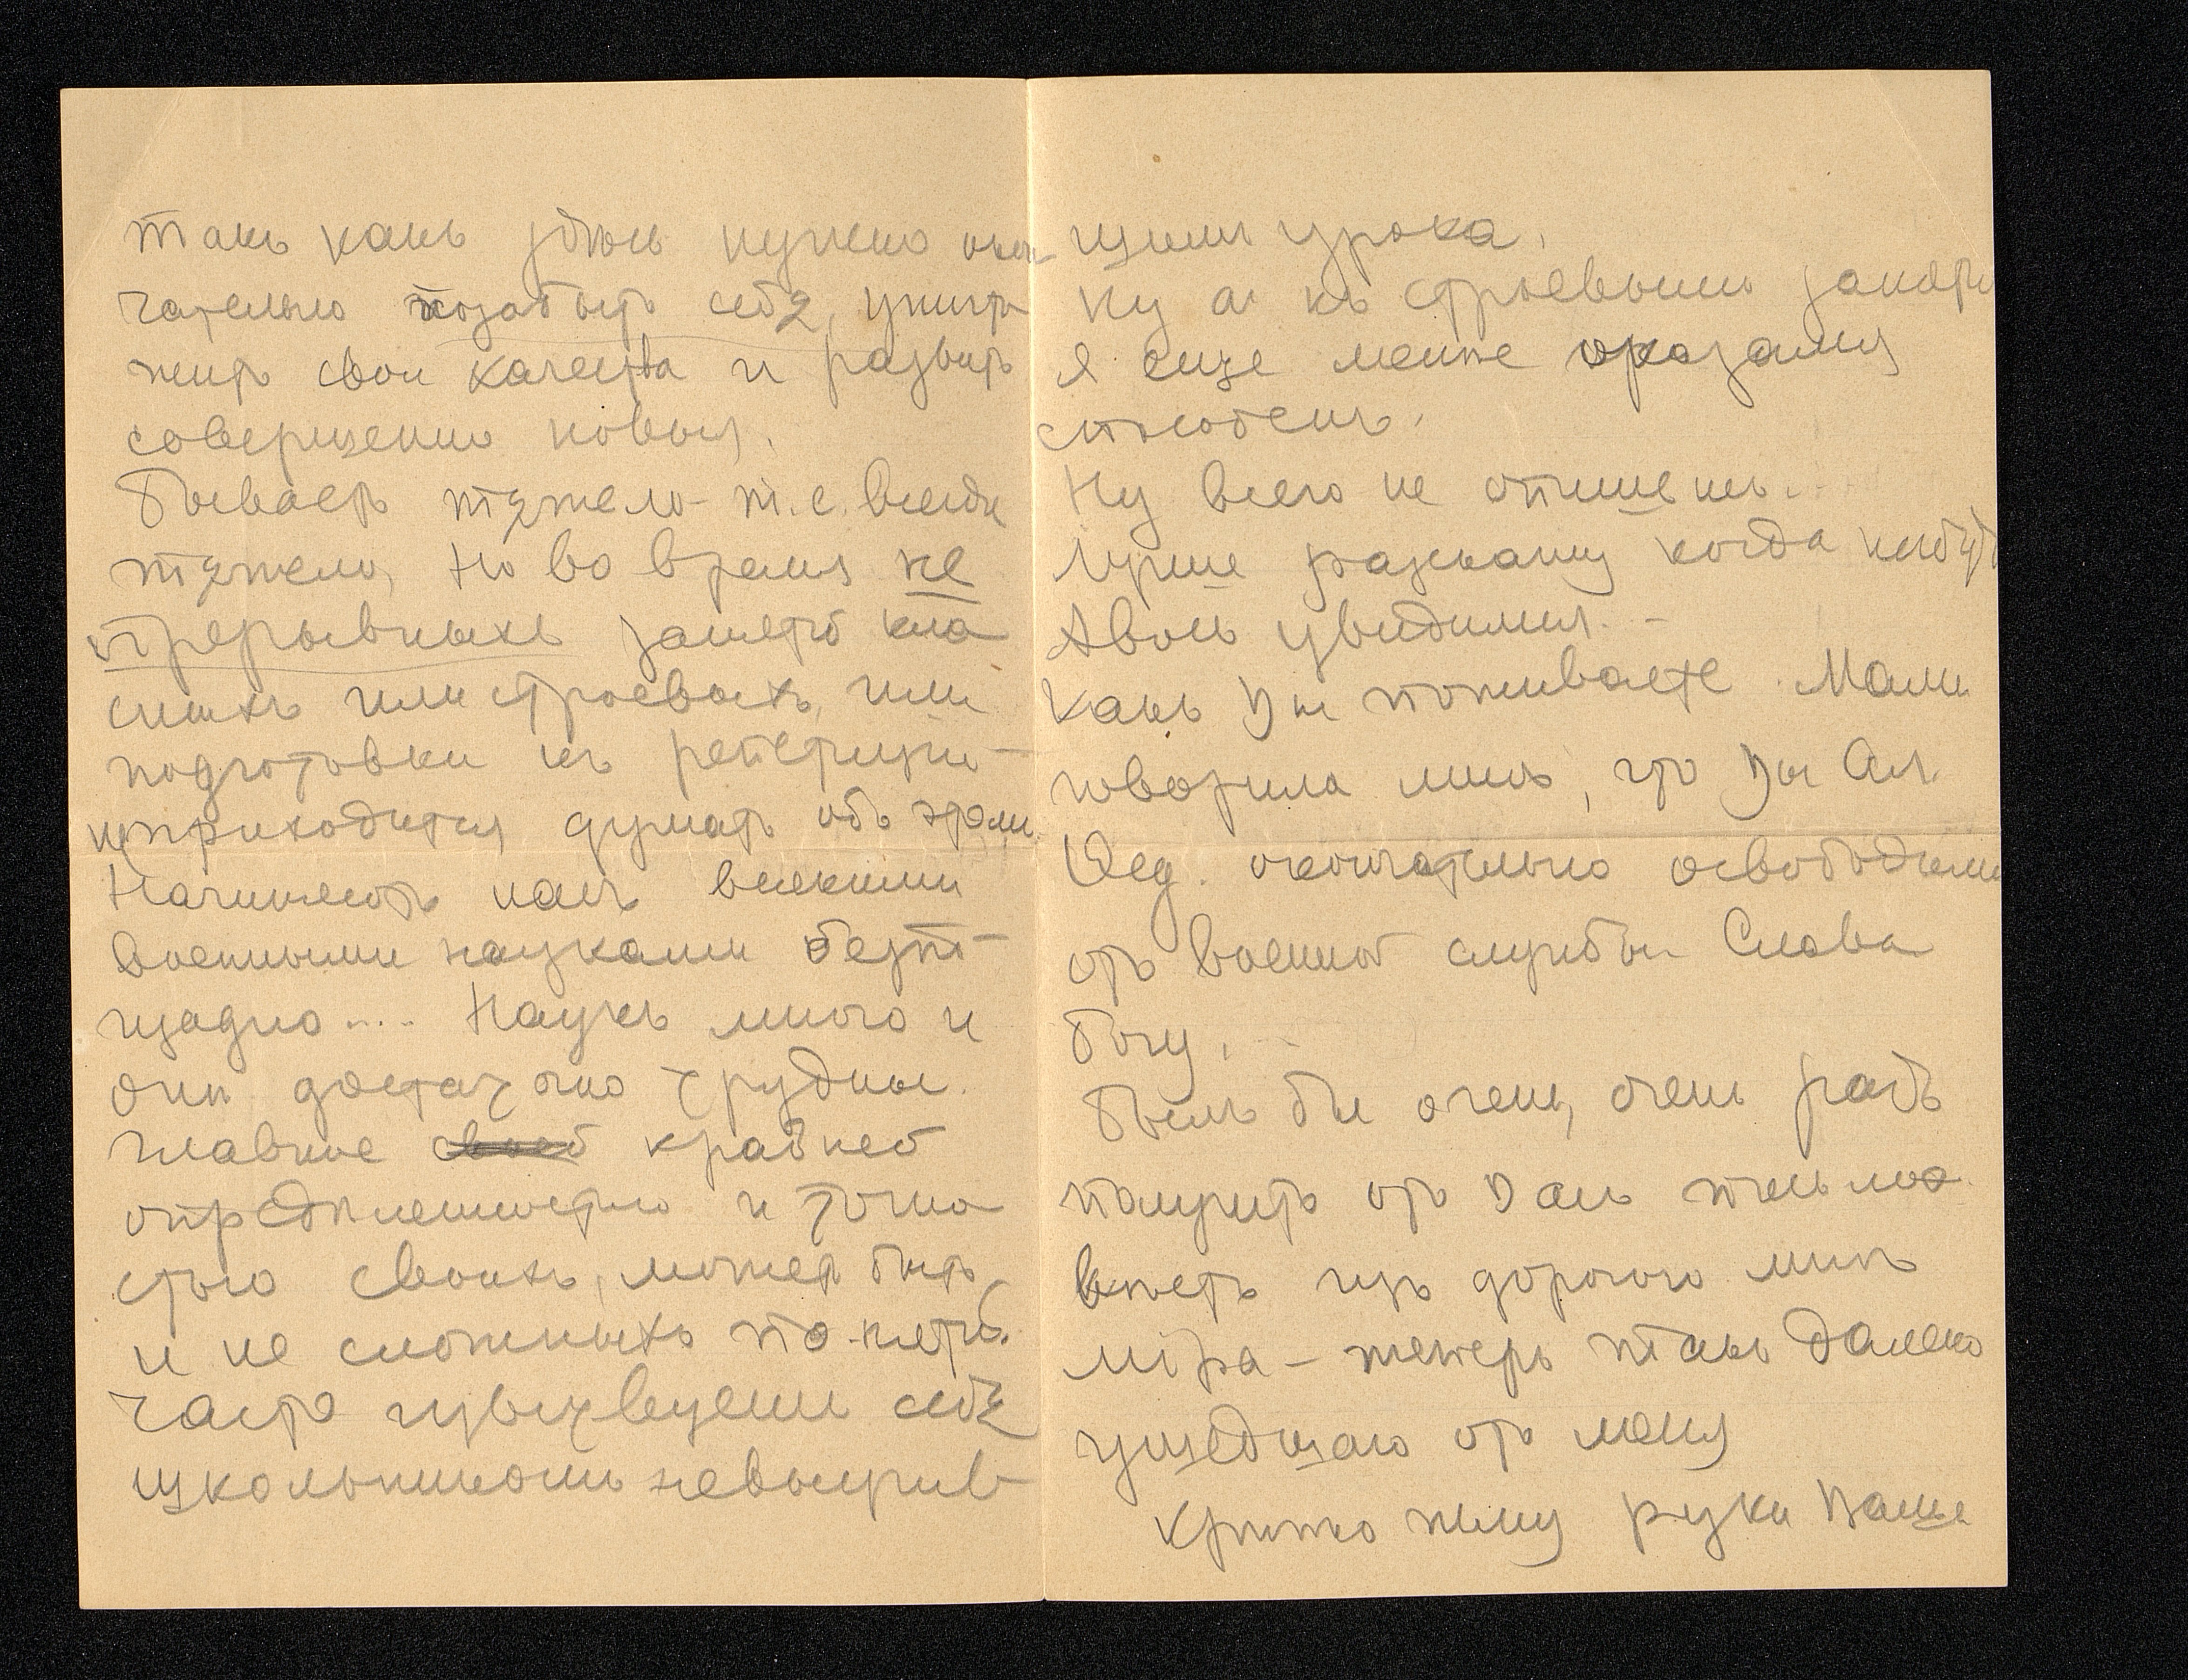 такъ какъ здѣсь нужно окон-
чательно позабыть себя, уничто
жить свои качества и развить
совершенно новыя.
Бываетъ тяжело – т.е. всегда
тяжело, но во время не
прерывныхъ занятій кла
сныхъ или строевыхъ, или
подготовки къ репетиціи –
не приходится думать объ этомъ.
Начиняютъ насъ всякими
военными науками безпо-
щадно.... Наукъ много и
они достаточно трудны.
главное крайней
опредѣленностью и точно
стью своихъ, можетъ быть
и не сложныхъ понятій.
Часто чувствуешь себя
школьникомъ невыучив-
шимъ урока.
Ну а къ строевымъ занятi
я еще менѣе оказался
способенъ.
Ну всего не опишешь...
Лучше разскажу когда нибудь
Авось увидимся. –
Какъ Вы поживаете. Мама
говорила мнѣ, что Вы Ал.
Фед. окончательно освобождены
отъ военной службы Слава
Богу.
Былъ бы очень, очень радъ
получить отъ Васъ письмо
вѣсть изъ дорогого мнѣ
міра – теперь такъ далеко
ушедшаго отъ меня
Крѣпко жму руки Ваши